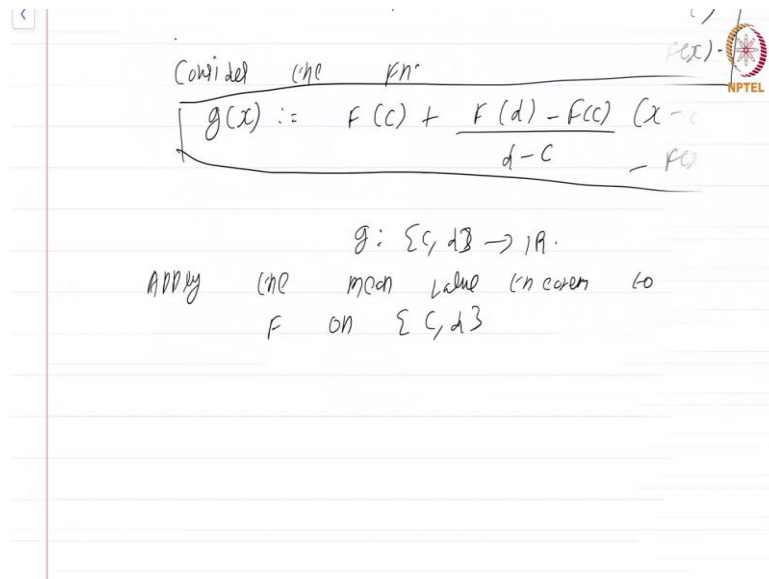 F(x) -
NPTEL
Consider the Fn.
g(x) := F(c) + F(d) - F(c) / d - c (x - c
- F(x
g: [c, d] → ℝ.
Apply the mean value theorem to
F on [c, d]